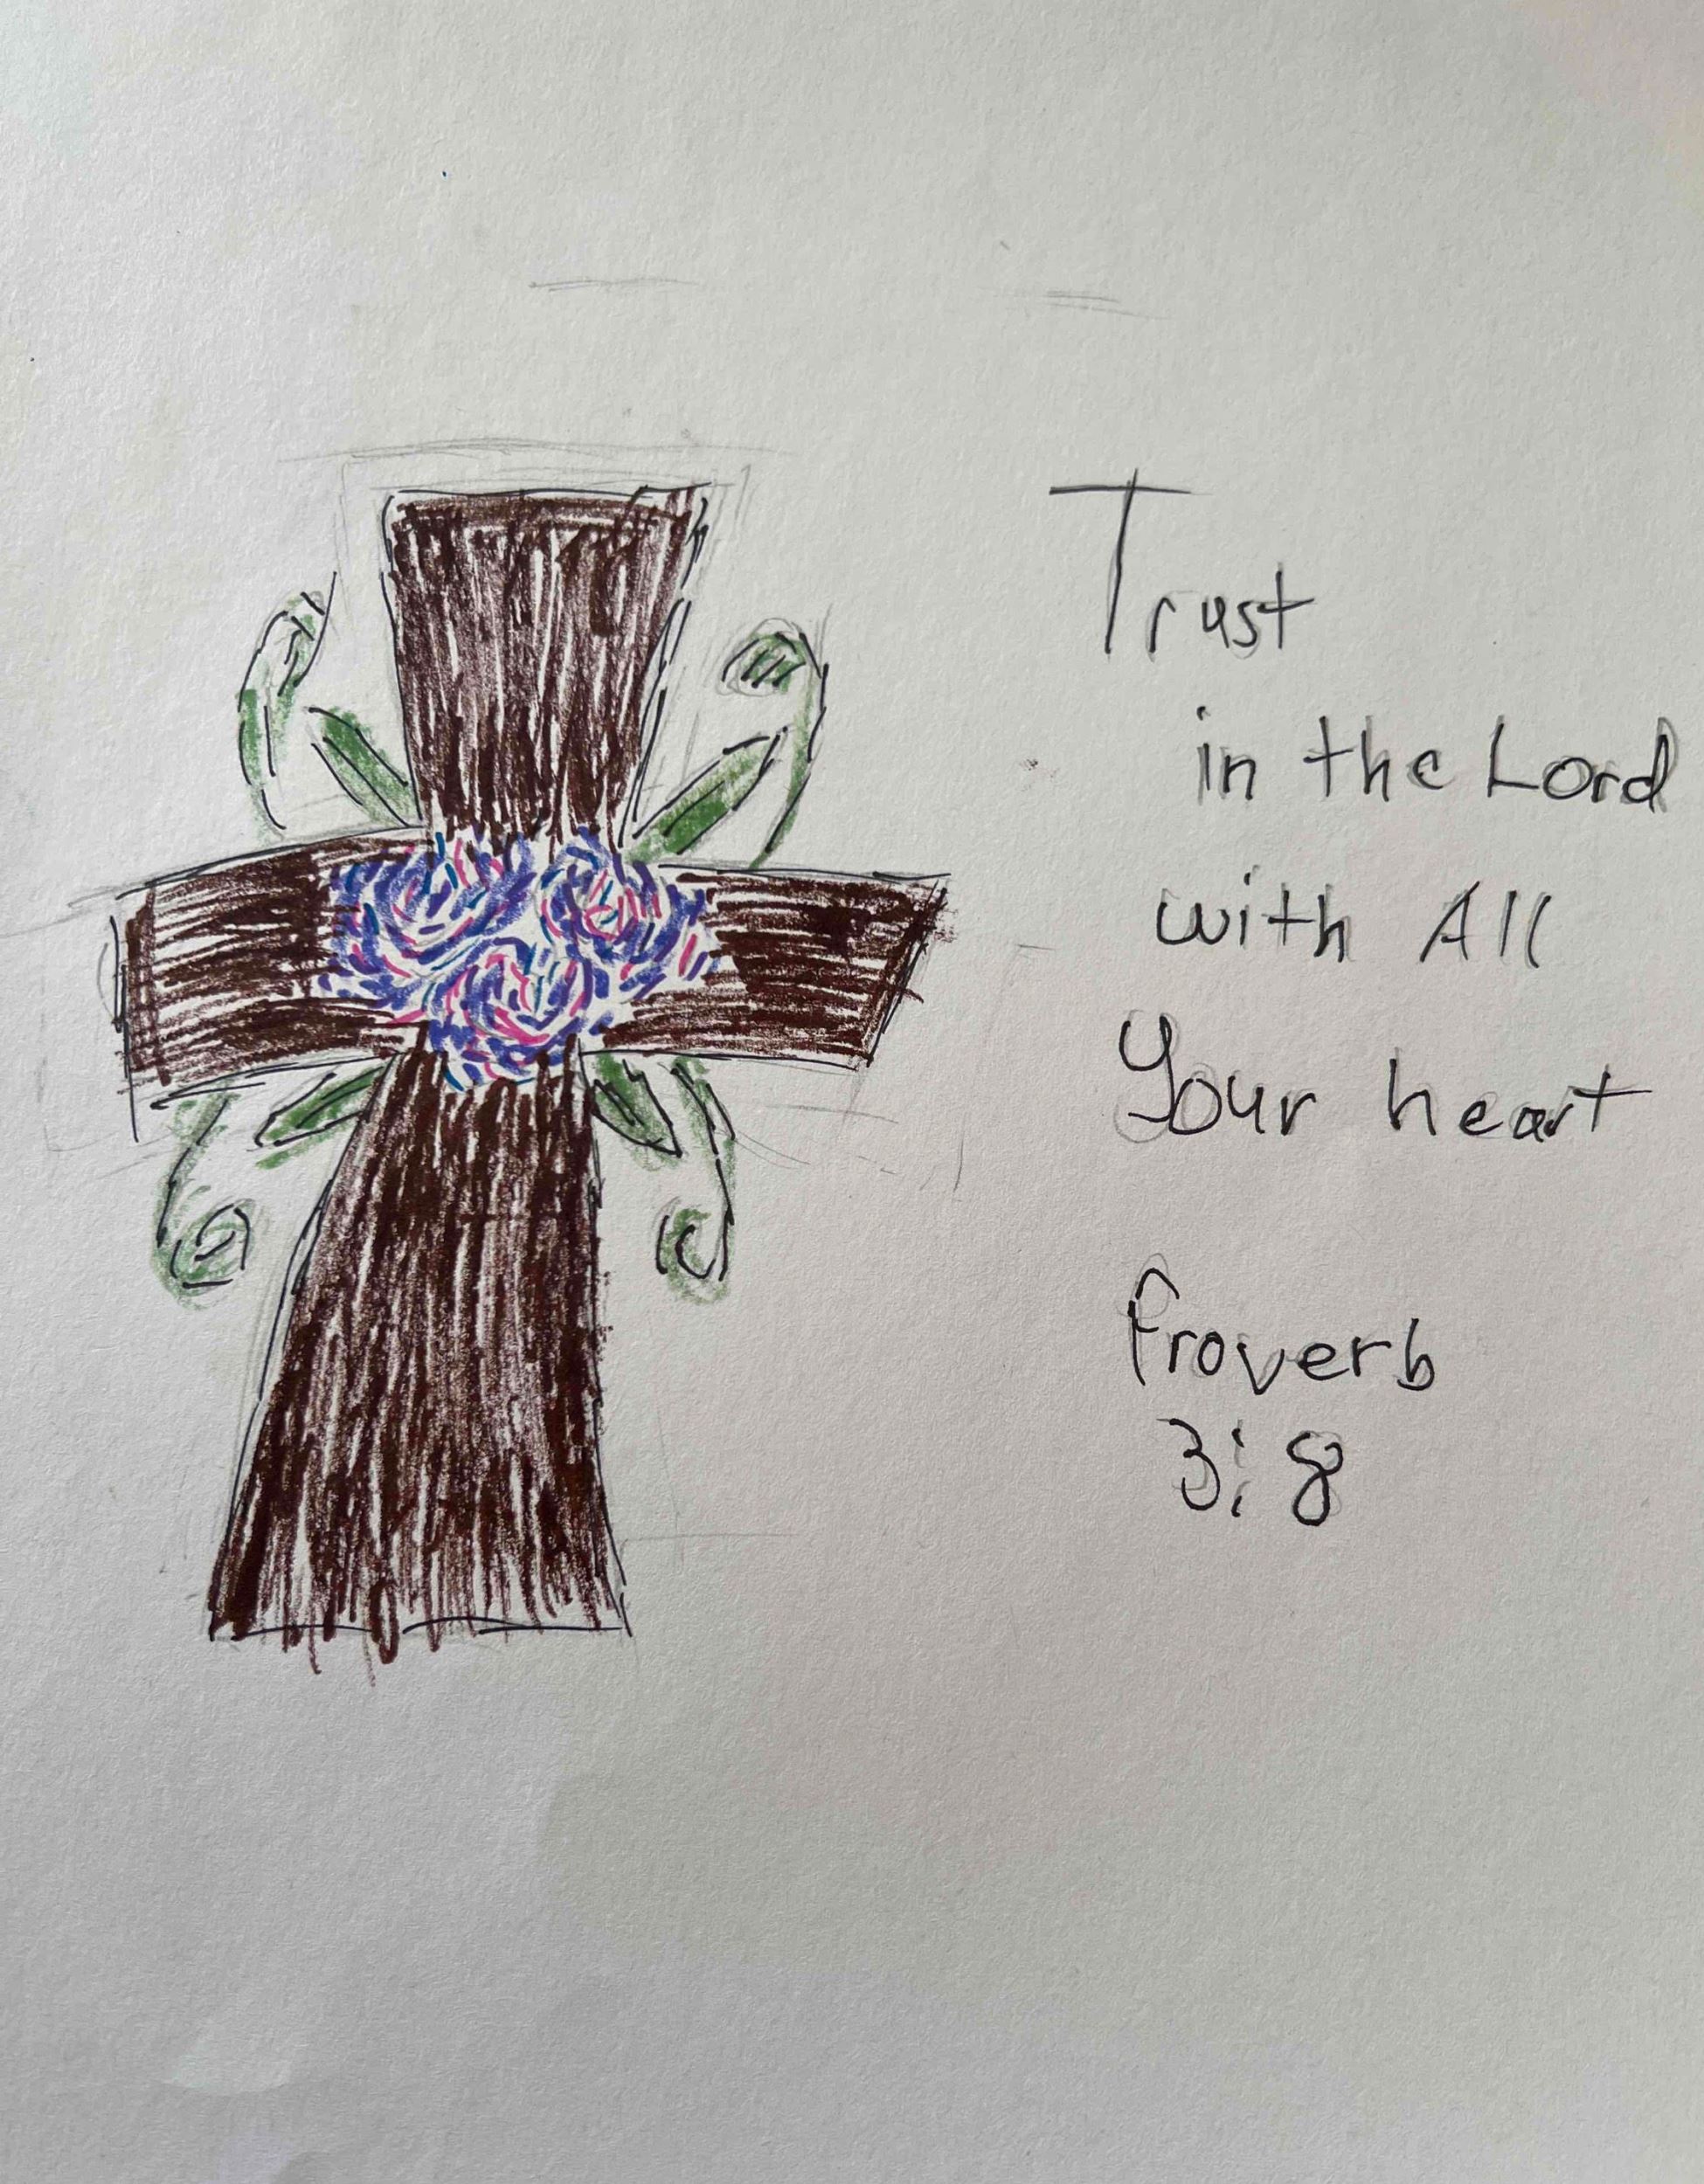 Trust
in the Lord
with All
Your heart
Proverb
3:8